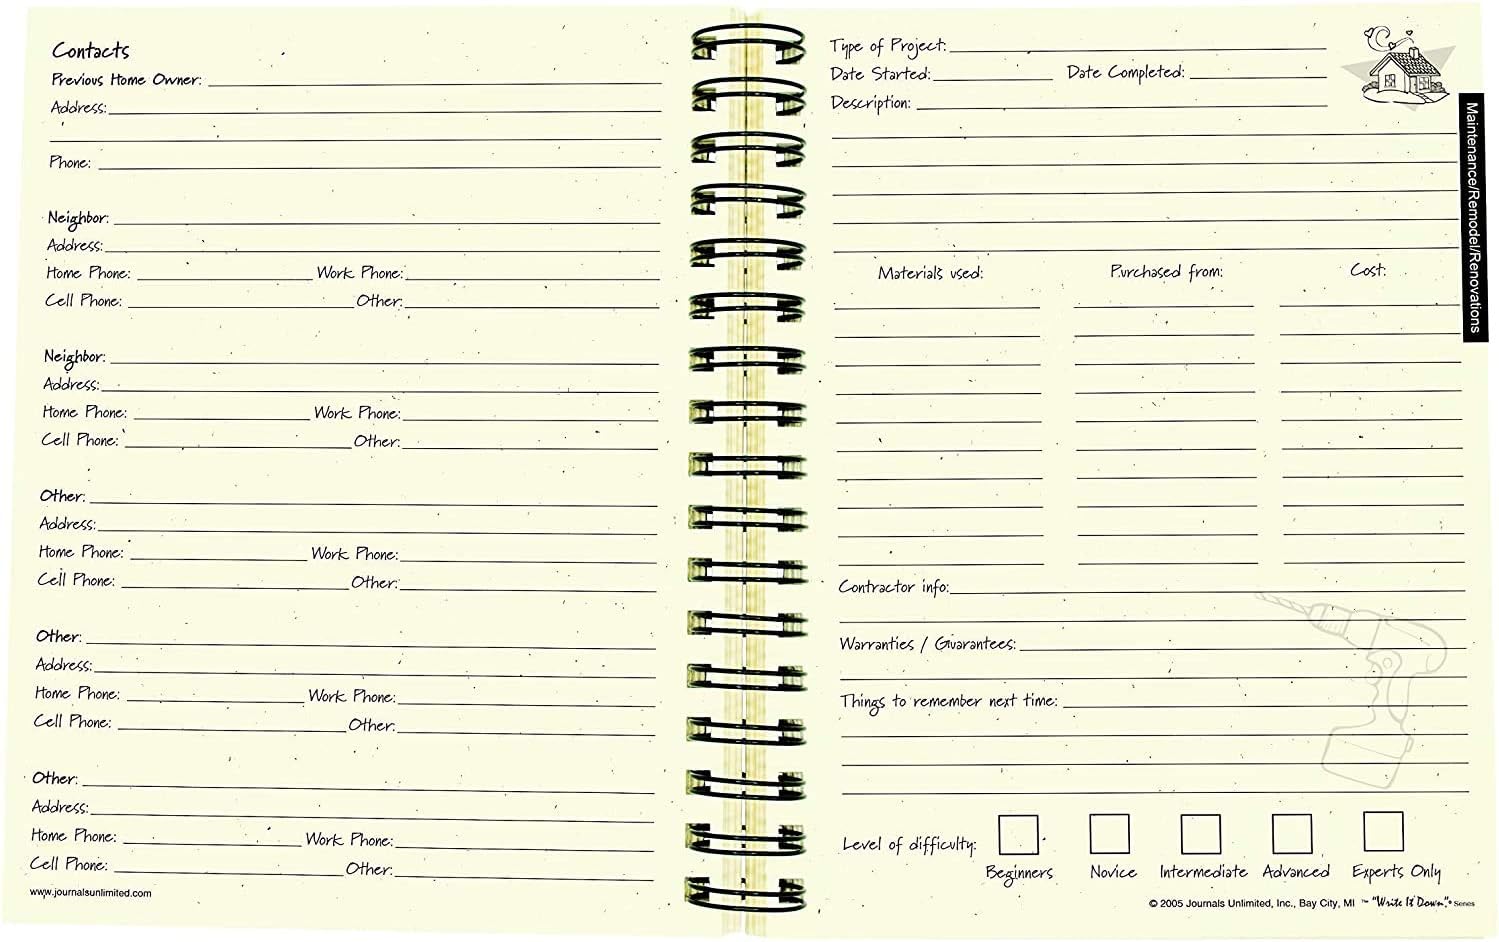 Contacts
Previous Home Owner:
Address:
Phone:
Neighbor:
Address:
Home Phone: Work Phone:
Cell Phone: Other:
Neighbor:
Address:
Home Phone: Work Phone:
Cell Phone: Other:
Other:
Address:
Home Phone: Work Phone:
Cell Phone: Other:
Other:
Address:
Home Phone: Work Phone:
Cell Phone: Other:
Other:
Address:
Home Phone: Work Phone:
Cell Phone: Other:
www.journalsunlimited.com
Type of Project:
Date Started: Date Completed:
Description:
Maintenance/Remodel/Renovations
Materials used: Purchased from: Cost:
Contractor info:
Warranties / Guarantees:
Things to remember next time:
Level of difficulty:
Beginners Novice Intermediate Advanced Experts Only
© 2005 Journals Unlimited, Inc., Bay City, MI ™ "Write It Down"® Series